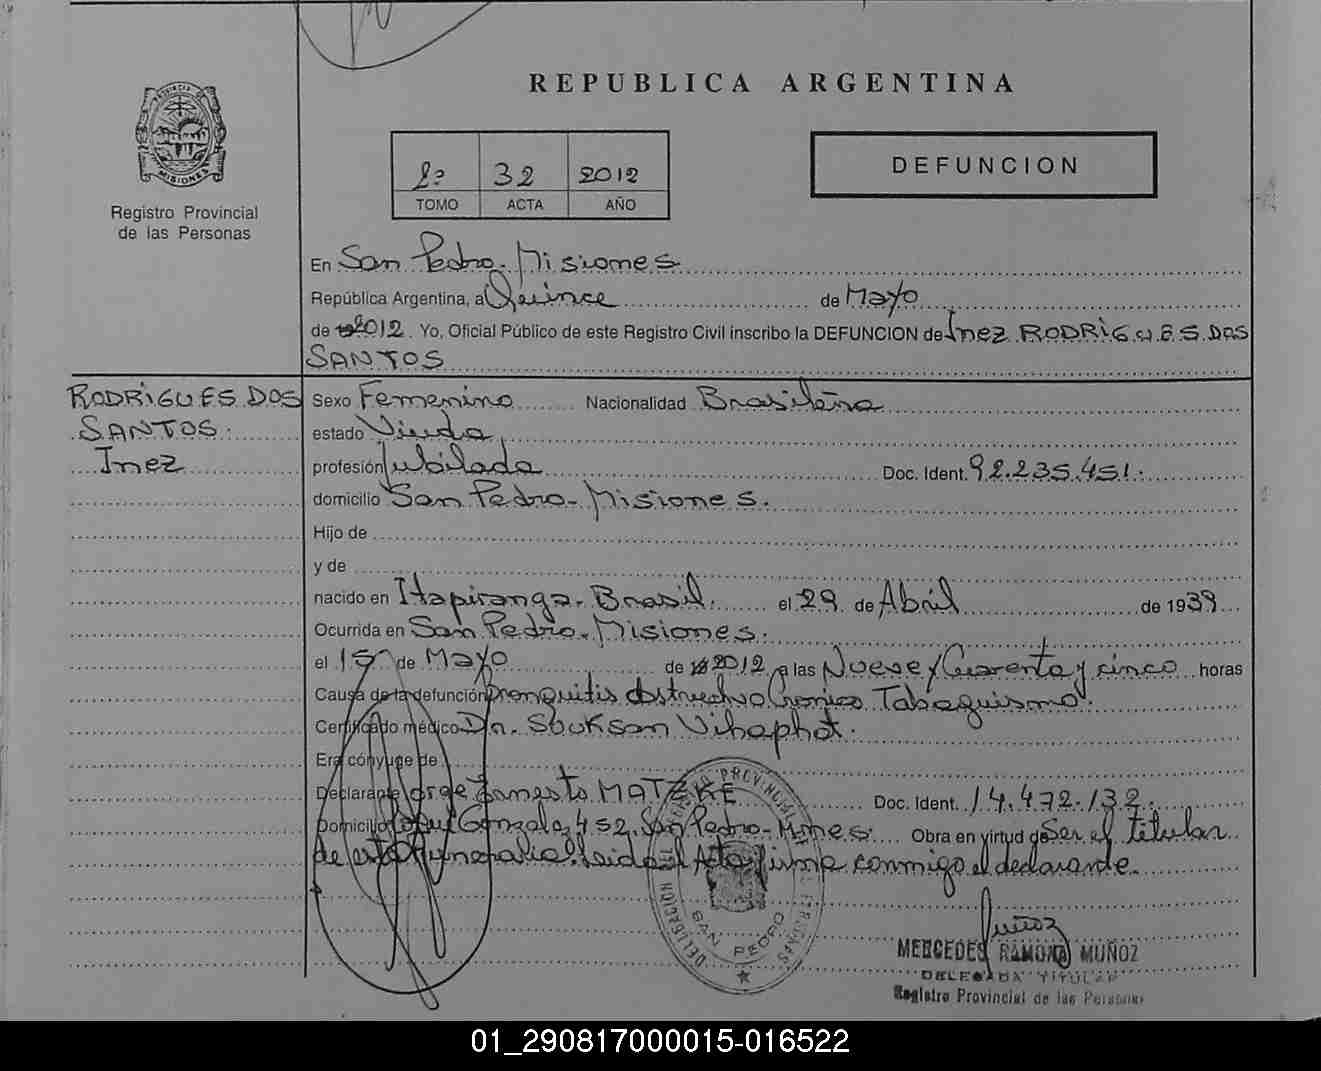 REPUBLICA ARGENTINA
PROVINCIA DE
MISIONES
Registro Provincial
de las Personas
1º 32 2012
TOMO ACTA AÑO
DEFUNCION
En San Pedro. Misiones.
República Argentina, a Quince de Mayo
de 2012. Yo, Oficial Público de este Registro Civil inscribo la DEFUNCION de Inez RODRIGUES DOS
SANTOS
RODRIGUES DOS
SANTOS.
Inez
Sexo Femenino Nacionalidad Brasileña
estado Viuda
profesión Jubilada Doc. Ident. 92.235.451.
domicilio San Pedro- Misiones.
Hijo de
y de
nacido en Itapiranga- Brasil. el 29 de Abril de 1939
Ocurrida en San Pedro- Misiones.
el 15 de Mayo de 2012 a las Nueve y Cuarenta y cinco horas
Causa de la defunción Bronquitis obstructivo Cronico Tabaquismo.
Certificado médico Dr. Souksan Vihaphat.
Era cónyuge de
Declarante Jorge Ernesto MATZKE Doc. Ident. 14.472.132.
Domicilio Gonzalez 452. San Pedro- Mnes. Obra en virtud de Ser el titular
de esta Funeraria. Leida el Acta firma conmigo el declarante.
REGISTRO PROVINCIAL DE LAS PERSONAS
DELEGACION
SAN PEDRO
Muñoz
MERCEDES RAMONA MUÑOZ
DELEGADA TITULAR
Registro Provincial de las Personas
01_290817000015-016522